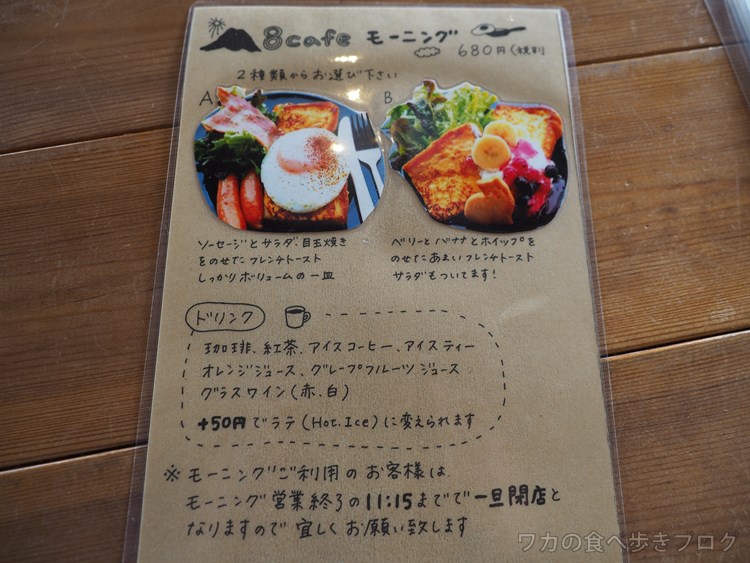 8cafe モーニング
680円(税別)
2種類からお選び下さい
A
ソーセージとサラダ、目玉焼き
をのせたフレンチトースト
しっかりボリュームの一皿
B
ベリーとバナナとホイップを
のせたあまいフレンチトースト
サラダもついてます!
ドリンク
珈琲、紅茶、アイスコーヒー、アイスティー
オレンジジュース、グレープフルーツジュース
グラスワイン(赤、白)
+50円でラテ(Hot, Ice)に変えられます
※モーニングご利用のお客様は
モーニング営業終了の11:15までで一旦閉店と
なりますので宜しくお願い致します
ワカの食べ歩きブログ